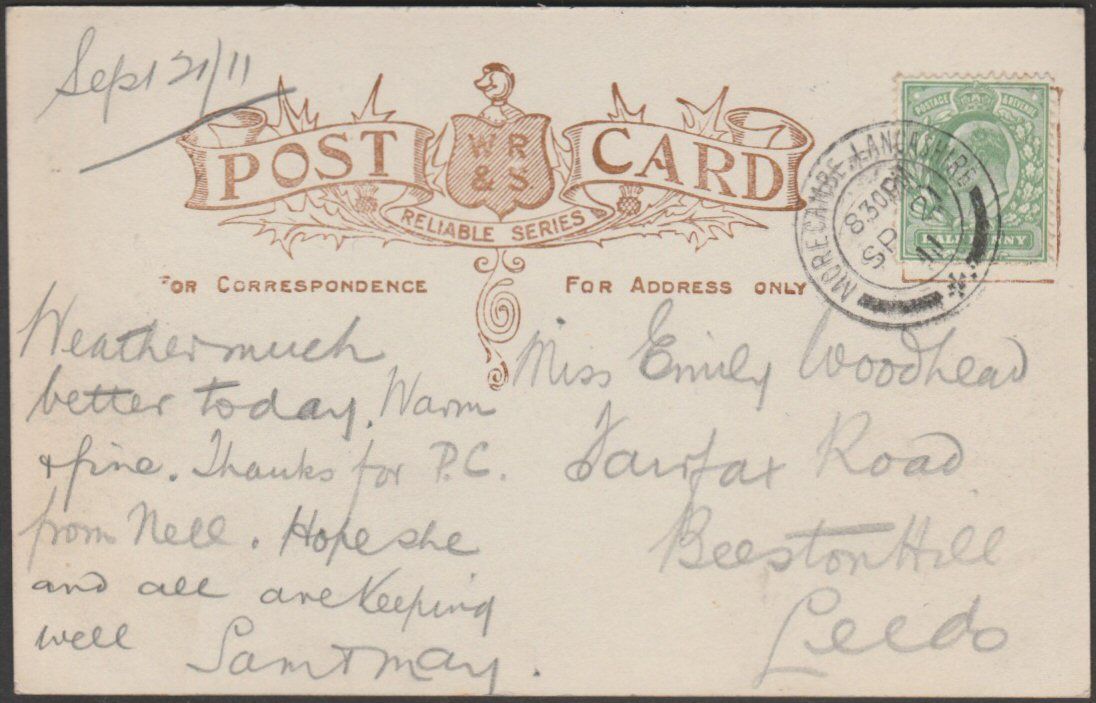 Sept 21/11
POST CARD
WR
& S
RELIABLE SERIES
FOR CORRESPONDENCE
FOR ADDRESS ONLY
POSTAGE & REVENUE
HALFPENNY
MORECAMBE. LANCASHIRE
8 30PM
SP 21
11
Weather much
better today. Warm
& fine. Thanks for P.C.
from Nell. Hope she
and all are keeping
well
Sam & May.
Miss Emily Woodhead
Fairfax Road
Beeston Hill
Leeds